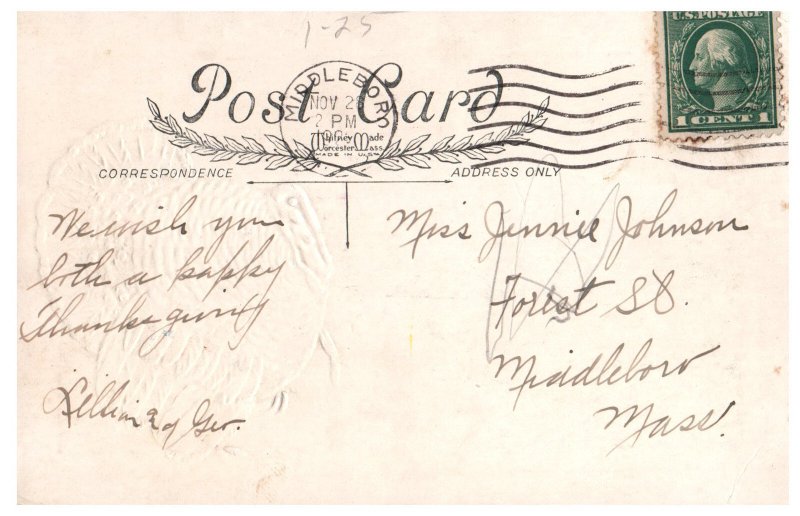 1-25
U.S. POSTAGE
1 CENT 1
Post Card
MIDDLEBORO
NOV 26
2 PM
Whitney Made
Worcester Mass.
MADE IN U.S.A.
CORRESPONDENCE
ADDRESS ONLY
We wish you
both a happy
Thanksgiving
Lillian & Geo.
Miss Jennie Johnson
Forest St.
Middleboro
Mass.